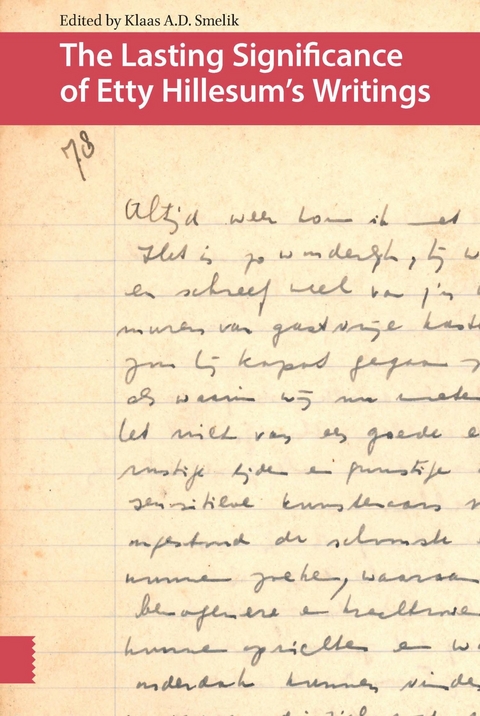 Edited by Klaas A.D. Smelik
The Lasting Significance
of Etty Hillesum's Writings
Altijd weer kom ik met
Het is zo wonderlijk, hij w
en schreef veel van z'n
muren van gastvrije kaste
zou hij kapot gegaan
als waarin wij nu moeten
het niet van een goede e
rustige tijden en gunstige
sensitieve kunstenaars
ongestoord de schoonste
kunnen zoeken, waaraan
bewogener en krachtrove
kunnen oprichten en wa
onderdak kunnen vinden